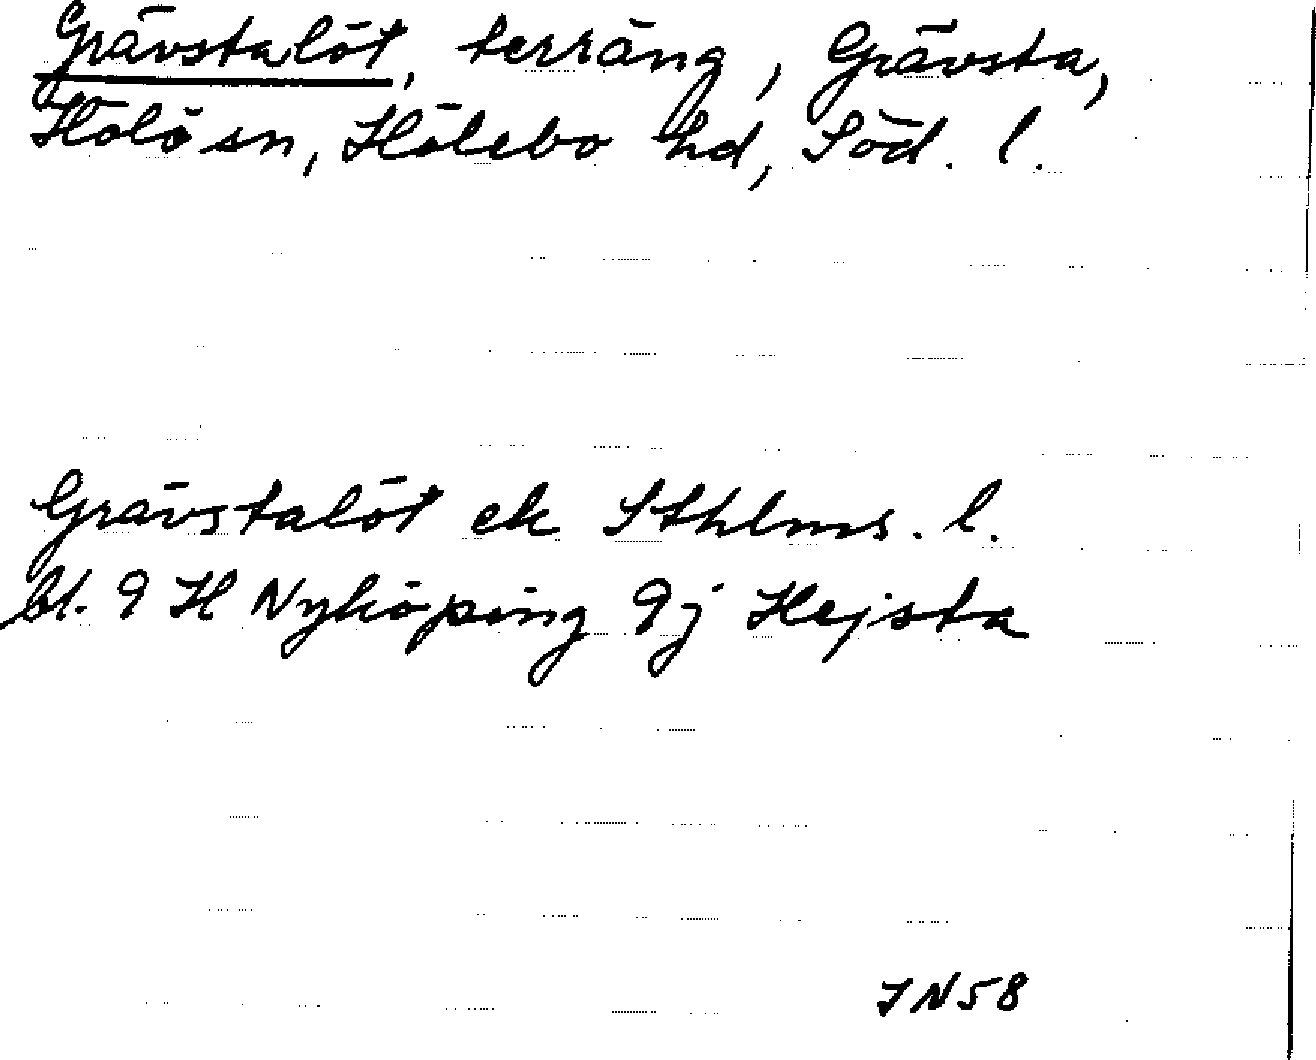 Grävstalöt, terräng, Grävsta,
Hölö sn, Hölebo hd, Söd. l.
Grävstalöt ek Sthlms. l.
bl. 9 H Nyköping 9j Hejsta
IN58